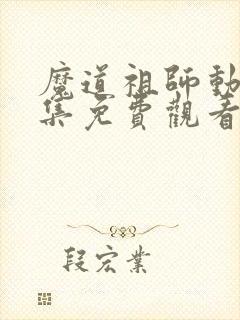 魔道祖師動
集免費觀看
段宏業